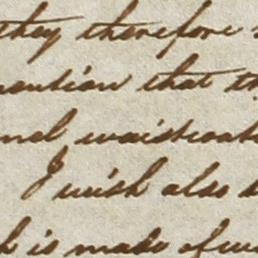 they therefore
mention that th
nel waistcoat
I wish also
h is made of w